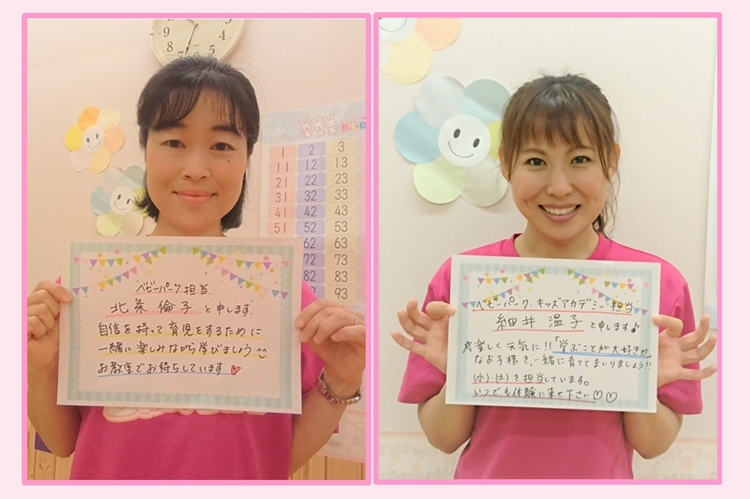 ベビーパーク担当
北条 倫子 と申します.
自信を持って育児をするために
一緒に楽しみながら学びましょう
お教室でお待ちしています♡
ベビーパーク キッズアカデミー担当
細井 温子 と申します♪
楽しく元気に!!「学ぶことが大好き」
なお子様を、一緒に育ててまいりましょう!!
(水)(土)を担当しています。
いつでも体験に来て下さい♡♡
12
1 2 3
11 12 13
21 22 23
31 32 33
41 42 43
51 52 53
62 63
72 73
82 83
93